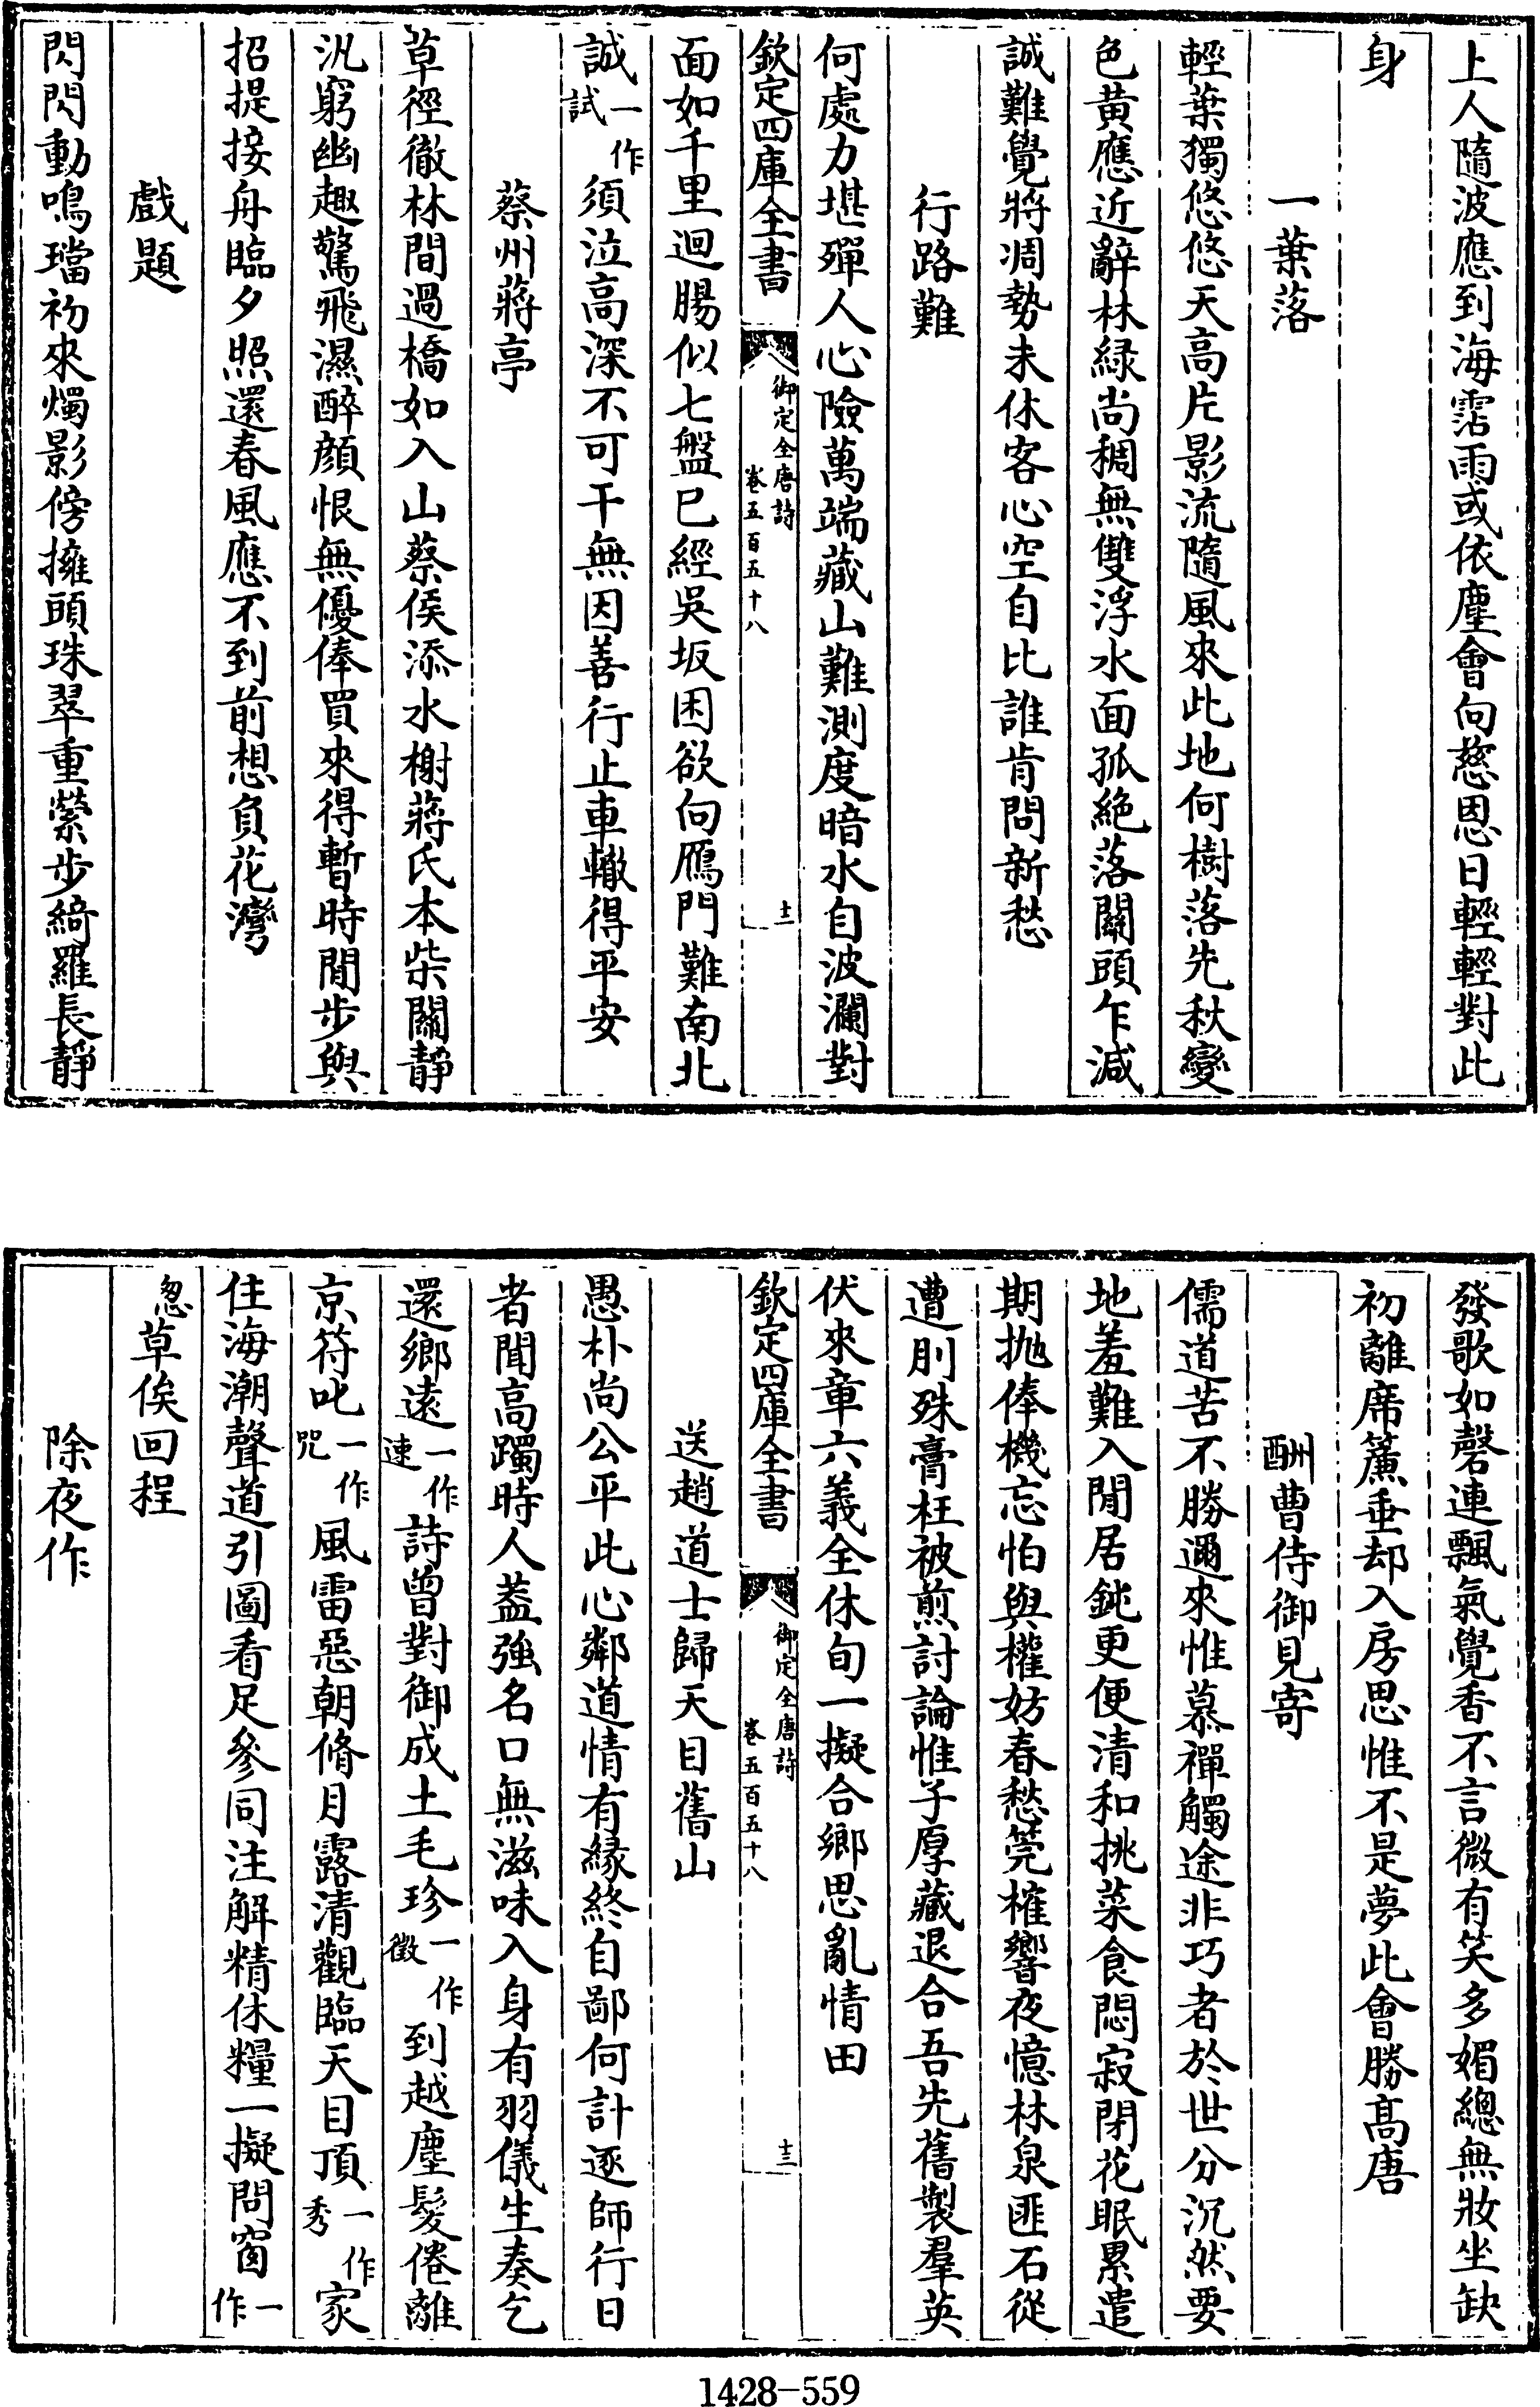 上人隨波應到海霑雨或依塵會向慈恩日輕輕對此
身
一葉落
輕葉獨悠悠天高片影流隨風來此地何樹落先秋變
色黃應近辭林綠尚稠無雙浮水面孤絶落關頭乍減
誠難覺將凋勢未休客心空自比誰肯問新愁
行路難
何處力堪殫人心險萬端藏山難測度暗水自波瀾對
欽定四庫全書 御定全唐詩 卷五百五十八 十二
面如千里迴腸似七盤已經吳坂困欲向鴈門難南北
誠一作試須泣高深不可干無因善行止車轍得平安
蔡州蔣亭
草徑徹林間過橋如入山蔡侯添水榭蔣氏本柴關靜
汎窮幽趣驚飛濕醉顔恨無優俸買來得暫時閒步與
招提接舟臨夕照還春風應不到前想負花灣
戲題
閃閃動鳴璫初來燭影傍擁頭珠翠重縈步綺羅長靜
發歌如磬連飄氣覺香不言微有笑多媚總無妝坐缺
初離席簾垂却入房思惟不是夢此會勝髙唐
酬曹侍御見寄
儒道苦不勝邇來惟慕禪觸途非巧者於世分沉然要
地羞難入閒居鈍更便清和挑菜食悶寂閉花眠累遣
期抛俸機忘怕與權妨春愁筦榷響夜憶林泉匪石從
遭刖殊膏枉被煎討論惟子厚藏退合吾先舊製羣英
伏來章六義全休旬一擬合鄉思亂情田
欽定四庫全書 御定全唐詩 卷五百五十八 十三
送趙道士歸天目舊山
愚朴尚公平此心鄰道情有緣終自鄙何計逐師行日
者聞高躅時人葢強名口無滋味入身有羽儀生奏乞
還鄉遠一作速詩曾對御成土毛珍一作徵到越塵髪倦離
京符叱一作咒風雷惡朝脩月露清觀臨天目頂一作秀家
住海潮聲道引圖看足參同注解精休糧一擬問窗一作
怱草俟回程
除夜作
1428-559